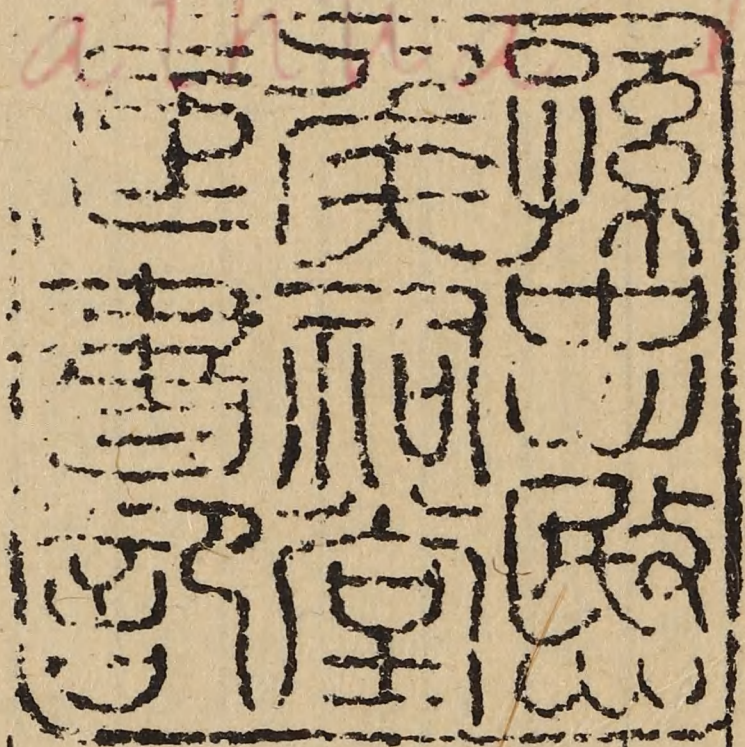 孫忠愍
侯祠堂
藏書記